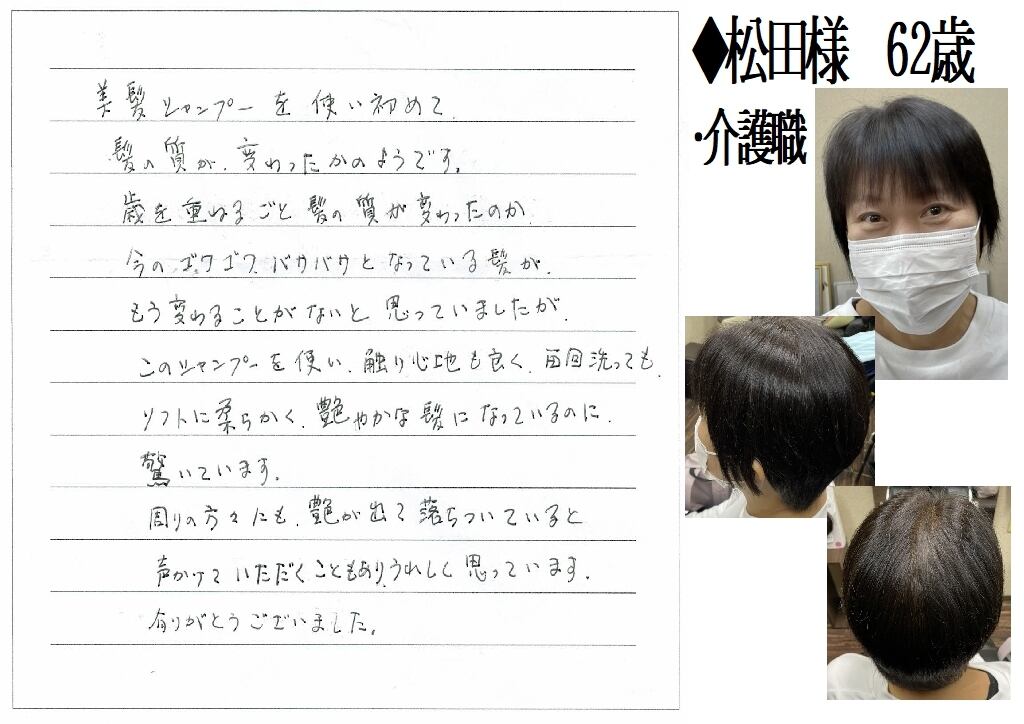 美髪シャンプーを使い初めて、
髪の質が、変わったかのようです。
歳を重ねるごと髪の質が変わったのか、
今のゴワゴワ、バサバサとなっている髪が、
もう変わることがないと思っていましたが、
このシャンプーを使い、触り心地も良く、毎回洗っても、
ソフトに柔らかく、艶やかな髪になっているのに、
驚いています。
周りの方々にも、艶が出て落ちついていると
声かけていただくこともあり、うれしく思っています。
有りがとうございました。
◆松田様 62歳
・介護職